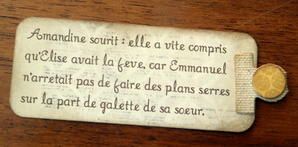 Amandine sourit : elle a vite compris
qu'Elise avait la feve, car Emmanuel
n'arretait pas de faire des plans serres
sur la part de galette de sa soeur.